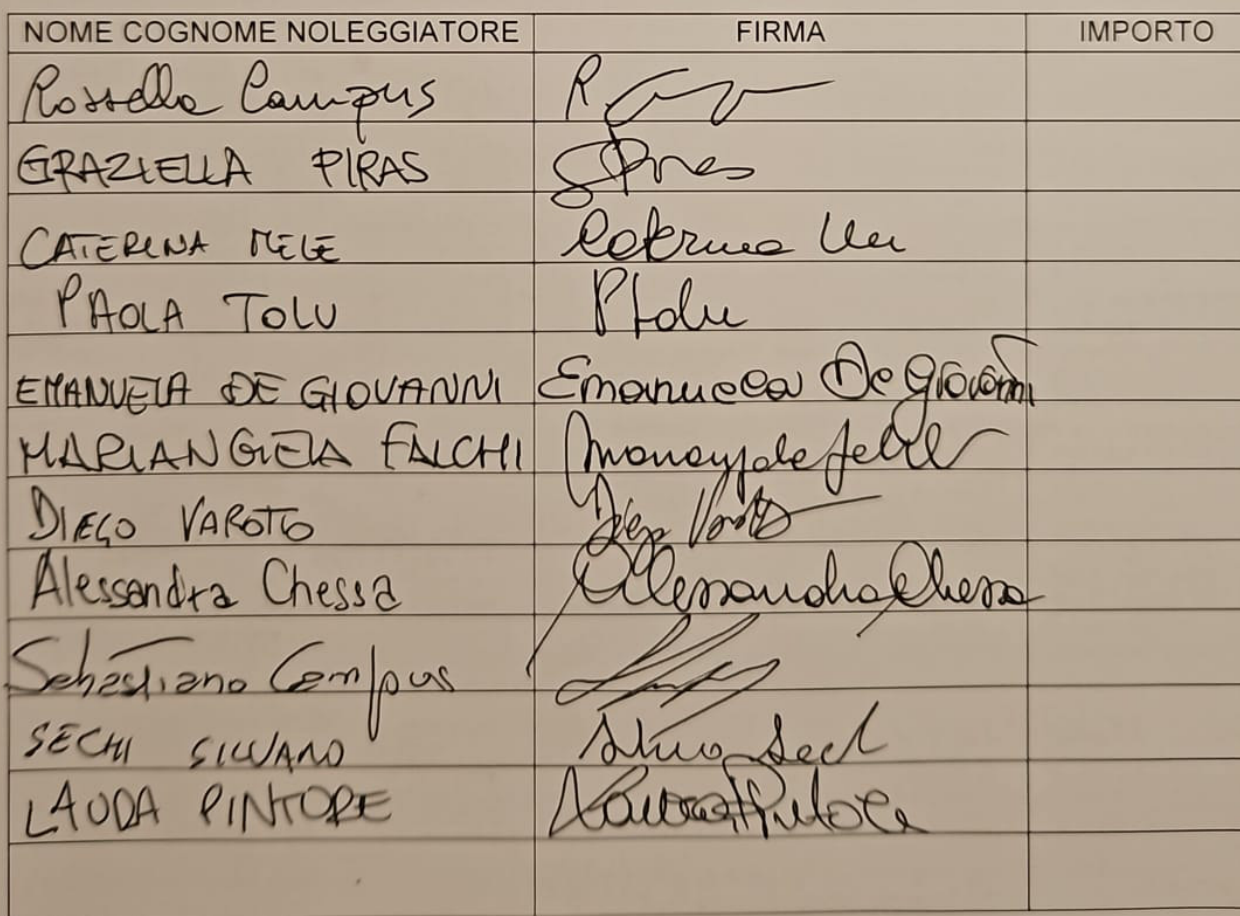 NOME COGNOME NOLEGGIATORE FIRMA IMPORTO
Rossella Campus R.
GRAZIELLA PIRAS GPiras
CATERINA MELE Caterina
PAOLA TOLU PTolu
EMANUELA DE GIOVANNI Emanuela De Giovanni
MARIANGELA FALCHI
DIEGO VAROTTO Diego
Alessandra Chessa Alessandra Chessa
Sebastiano Campus
SECHI SILVANO Sechi
LAURA PINTORE Laura Pintore